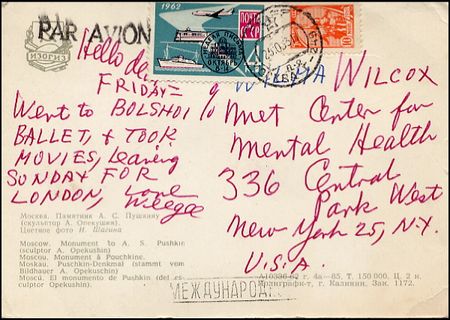 PAR AVION
ИЗОГИЗ
1962
ПОЧТА
СССР
Hello
FRIDAY-
Went to BOLSHOI
BALLET, & TOOK
MOVIES, Leaving
SUNDAY FOR
LONDON, Love
Weegee
% WILMA WILCOX
Met Center for
Mental Health
336 Central
Park West
New York 25, N.Y.
U.S.A.
Москва. Памятник А. С. Пушкину
(скульптор А. Опекушин).
Цветное фото Н. Шагина
Moscow. Monument to A. S. Pushkin
(sculptor A. Opekushin)
Moscou. Monument à Pouchkine.
Moskau. Puschkin-Denkmal (stammt vom
Bildhauer A. Opekuschin)
Moscú. El monumento de Pushkin (del es-
cultor Opekushin).
МЕЖДУНАРОД
А10336-62 г. 4а—85, Т. 150 000, Ц. 2 к.
г. Калинин, Зак. 1172.